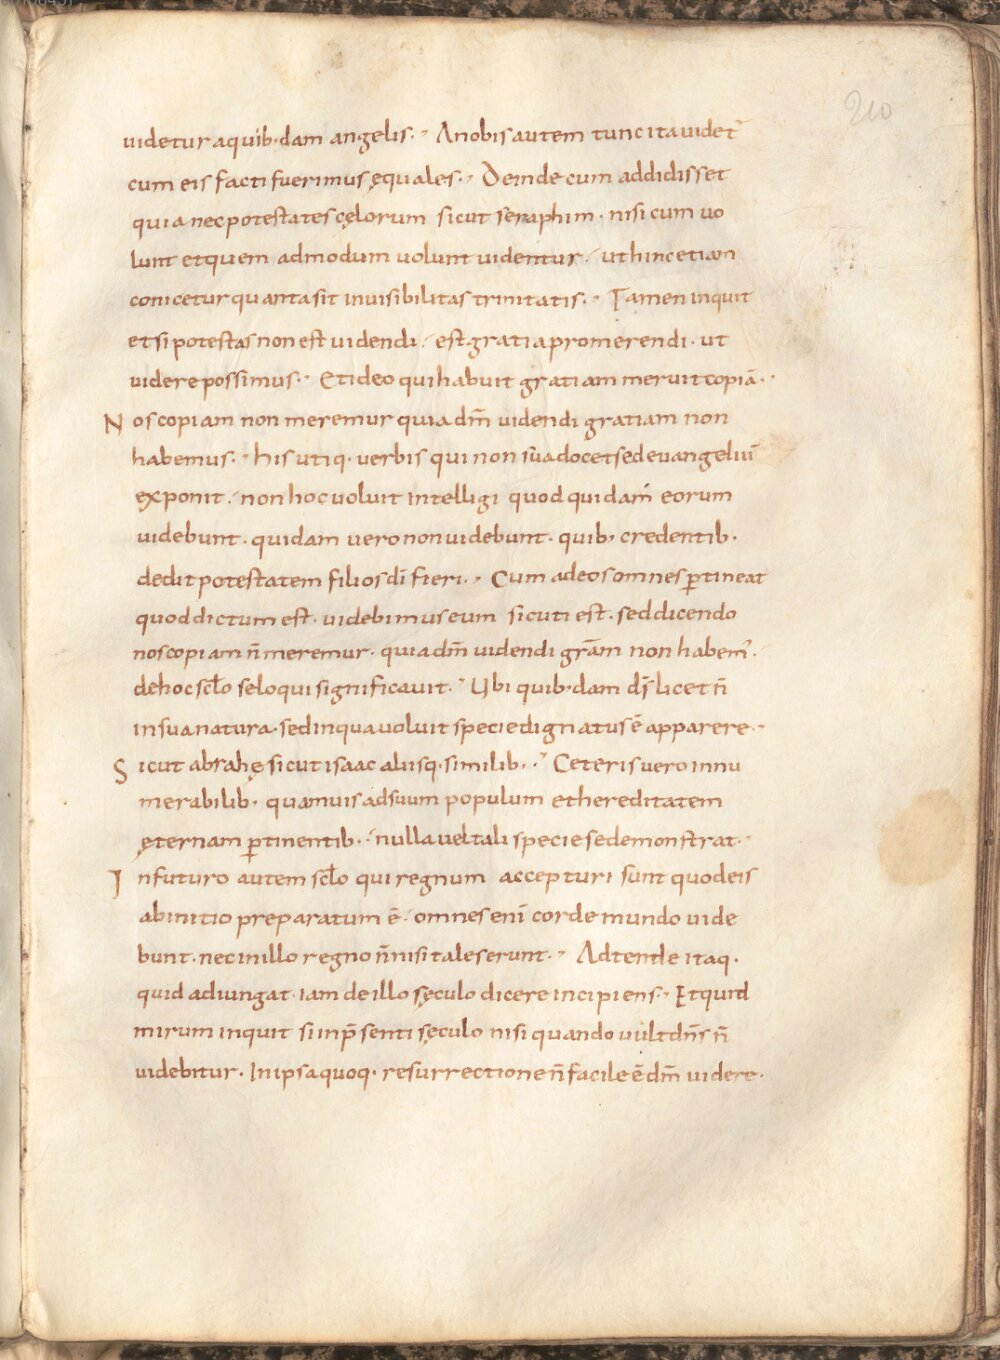 210
uidetur aquib· dam angelis· Anobis autem tunc ita uidet᷑
cum eis facti fuerimus ęquales· Deinde cum addidisset
quia nec potestates cęlorum sicut seraphim · nisi cum uo
lunt et quem admodum uolunt uidentur · ut hinc etiam
conicetur quanta sit inuisibilitas trinitatis· Tamen inquit
et si potestas non est uidendi · est gratia promerendi · ut
uidere possimus· Et ideo qui habuit gratiam meruit copiā·
Nos copiam non meremur quia dm̄ uidendi gratiam non
habemus· his utiq· uerbis qui non sua docet sed euangeliū
exponit · non hoc uoluit intelligi quod quidam eorum
uidebunt · quidam uero non uidebunt · quib; credentib·
dedit potestatem filios dī fieri· Cum ad eos omnes ꝑtineat
quod dictum est · uidebimus eum sicuti est · sed dicendo
nos copiam n̄ meremur · quia dm̄ uidendi grām non habem᷒·
de hoc sc̄lo se loqui significauit· Ubi quib· dam ds̄ licet n̄
in sua natura · sed in qua uoluit specie dignatus ē apparere·
Sicut abrahę sicut isaac aliisq· similib· Ceteris uero innu
merabilib· quamuis ad suum populum et hereditatem
ęternam ꝑtinentib· nulla uel tali specie se demonstrat·
In futuro autem sc̄lo qui regnum accepturi sunt quod eis
ab initio preparatum ē · omnes enī corde mundo uide
bunt · nec in illo regno n̄ nisi tales erunt· Adtende itaq·
quid adiungat · iam de illo sęculo dicere incipiens· Et quid
mirum inquit si in p̄senti sęculo nisi quando uult dn̄s n̄
uidebitur · In ipsa quoq· resurrectione n̄ facile ē dm̄ uidere·